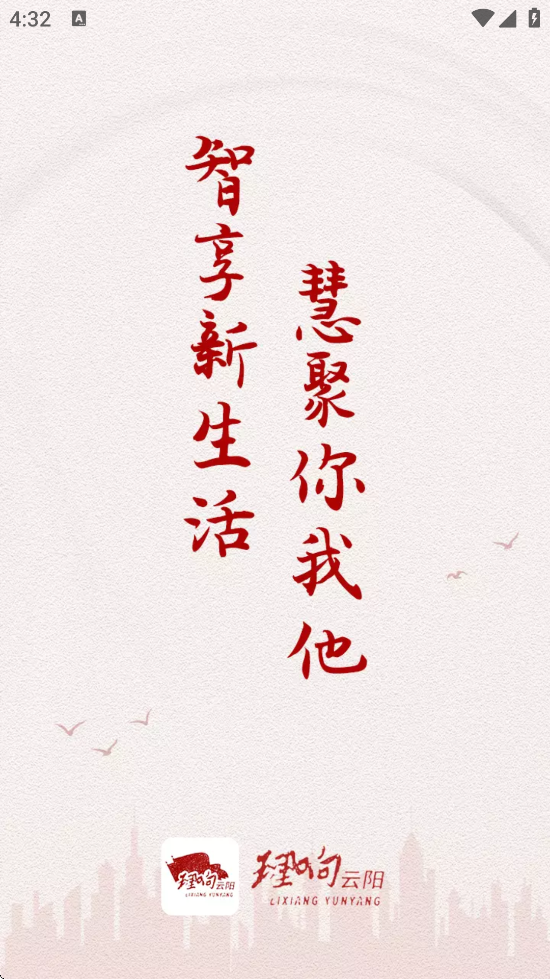 4:32
A
智享新生活
慧聚你我他
理响云阳
LIXIANG YUNYANG
理响云阳
LIXIANG YUNYANG